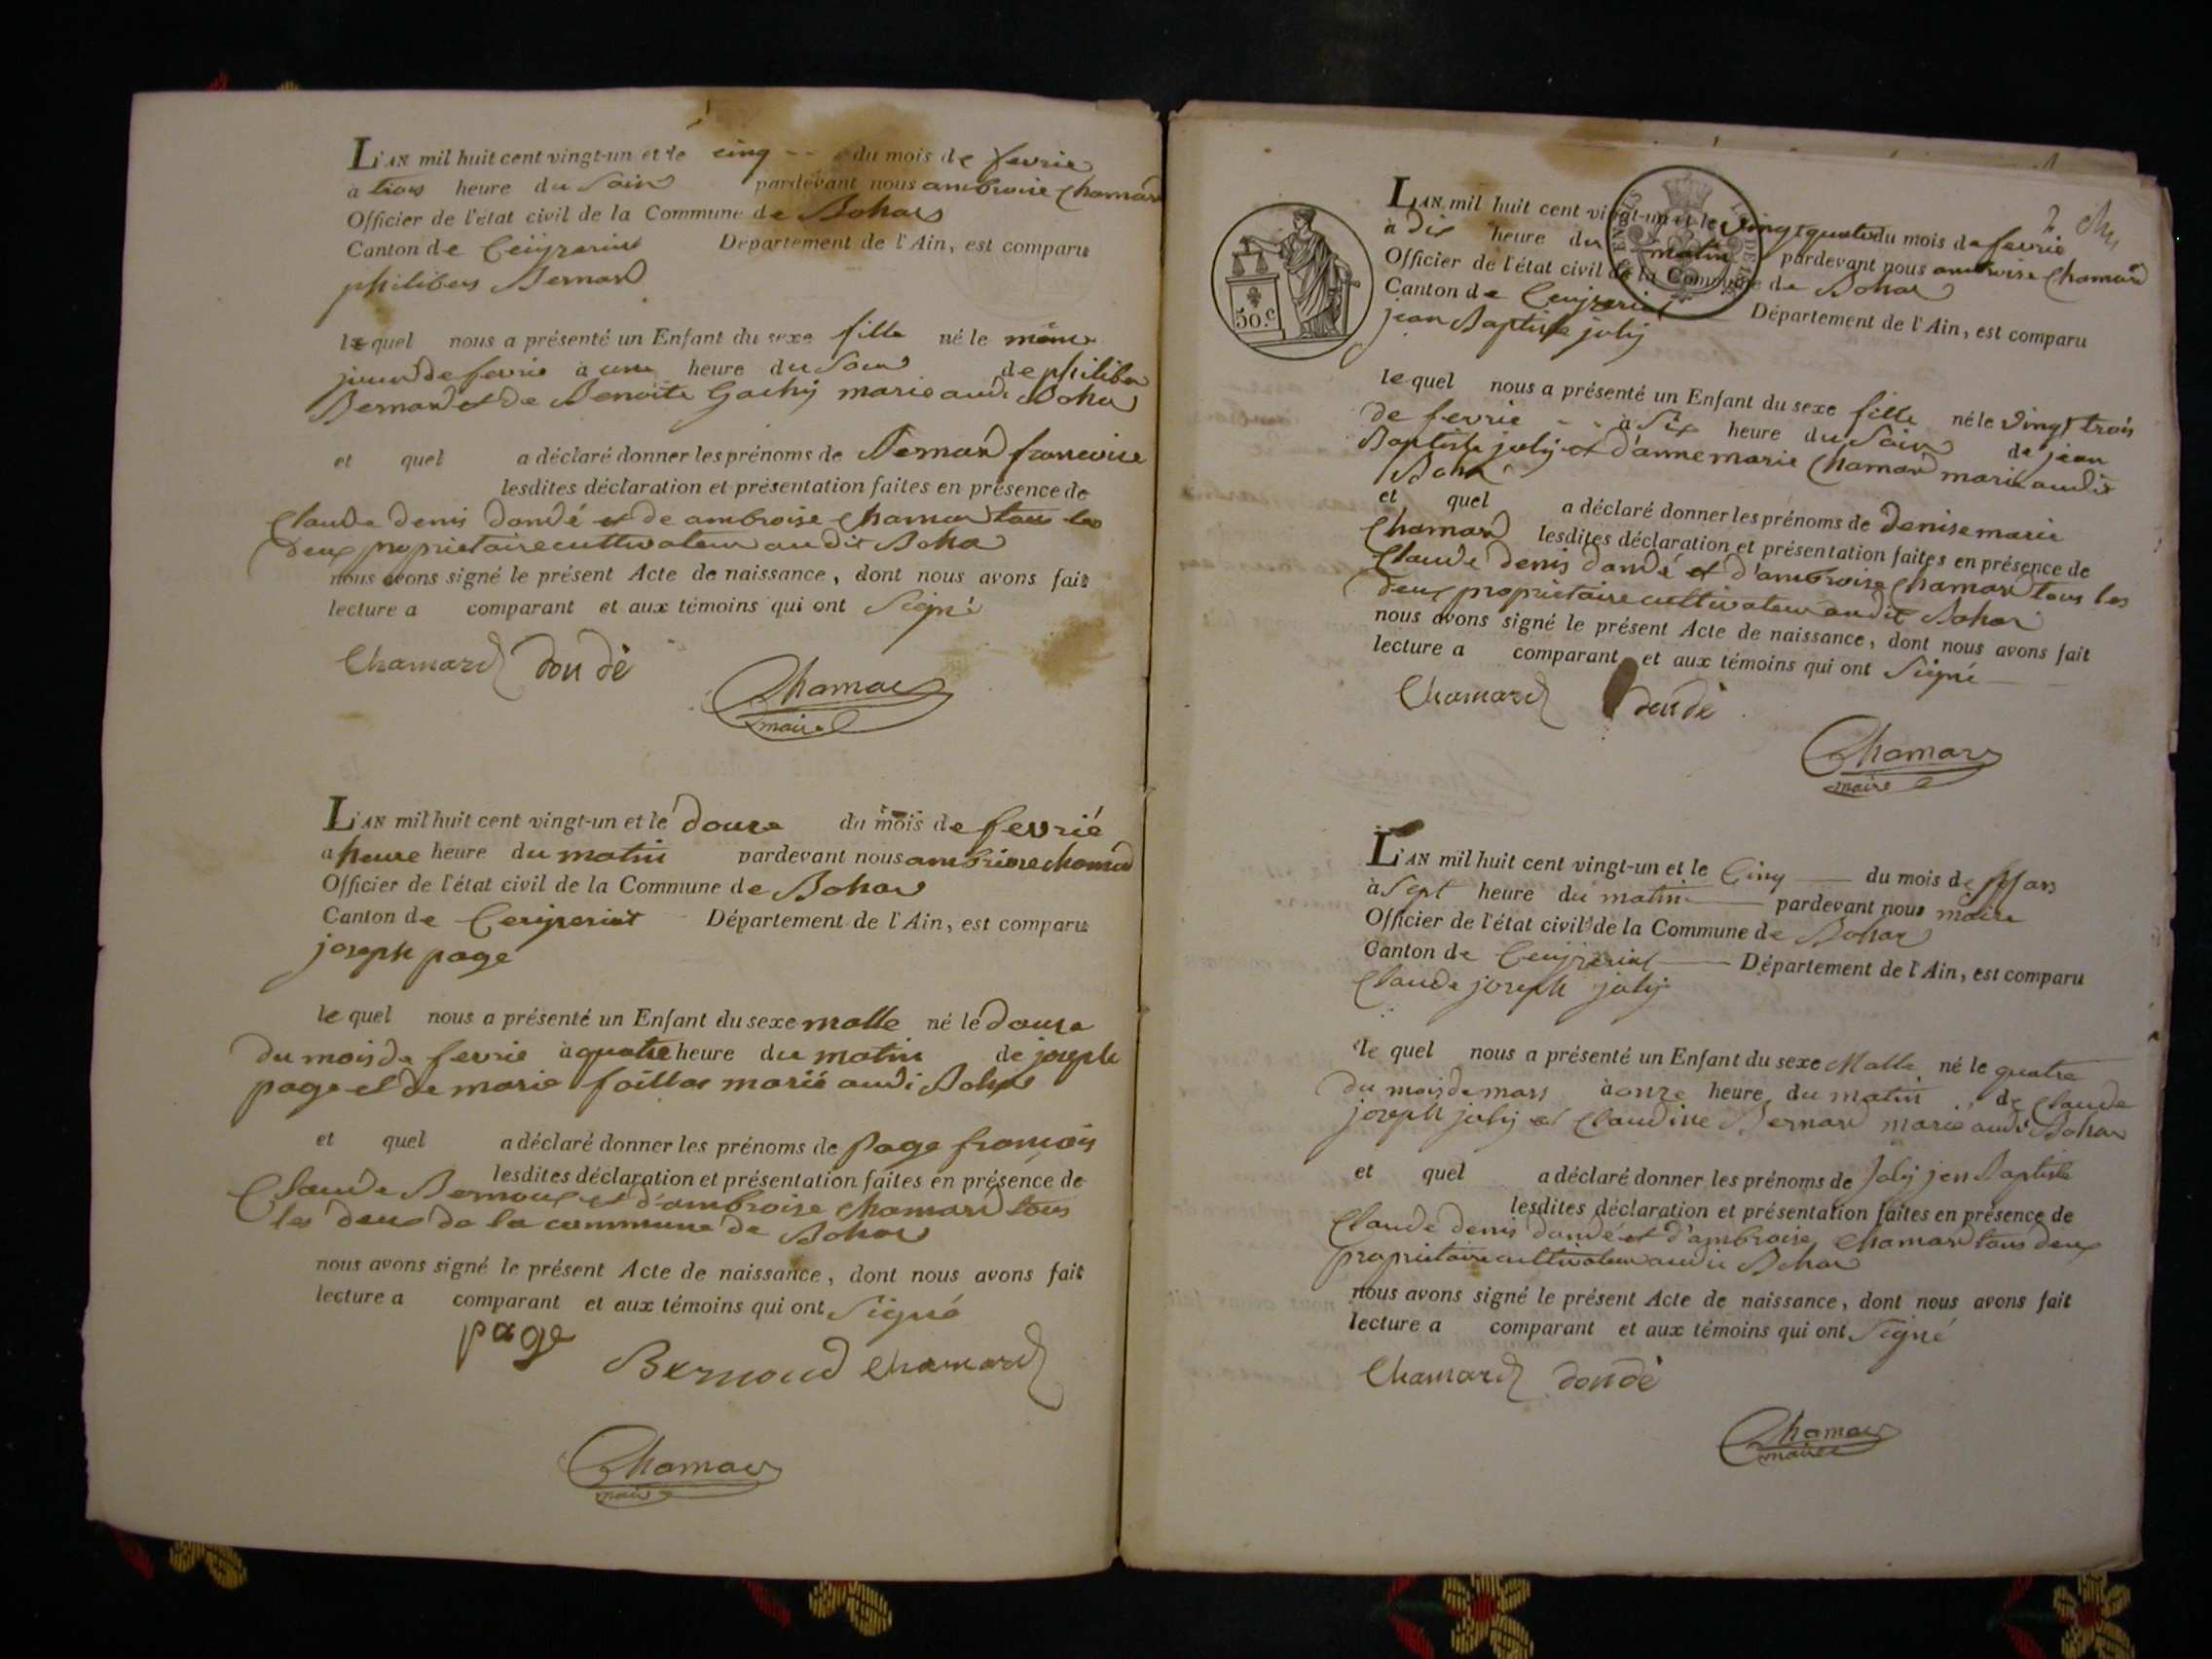 L'AN mil huit cent vingt-un et le cinq -- du mois de fevrie
a trois heure du soir pardevant nous ambroise chamard
Officier de l'état civil de la Commune de Bohas
Canton de Ceÿzeriat Département de l'Ain, est comparu
philibers Bernard
le quel nous a présenté un Enfant du sexe fille né le même
jour de fevrie à une heure du soir de philiber
Bernard et de Benoite Gachy marie audi Boha
et quel a déclaré donner les prénoms de Bernard francoise
lesdites déclaration et présentation faites en présence de
Claude denis dondé et de ambroise chamar tous les
deux proprietaire cultivateur audit Boha
nous avons signé le présent Acte de naissance, dont nous avons fait
lecture a comparant et aux témoins qui ont signé
Chamard dondé
Chamar
maire
L'AN mil huit cent vingt-un et le douze du mois de fevrié
a heure heure du matin pardevant nous chamard
Officier de l'état civil de la Commune de Bohas
Canton de Ceÿzeriat Département de l'Ain, est comparu
joseph page
le quel nous a présenté un Enfant du sexe malle né le douze
du mois de fevrie à quatre heure du matin de joseph
page et de marie marié audi Bohas
et quel a déclaré donner les prénoms de page francois
lesdites déclaration et présentation faites en présence de
Claude Bernoux et d'ambroise chamard tous
les deux de la commune de Bohas
nous avons signé le présent Acte de naissance, dont nous avons fait
lecture a comparant et aux témoins qui ont signé
page
Bernoud chamard
Chamar
maire
2
L'AN mil huit cent vingt-un et le vingt quatre du mois de fevrie
à dix heure du matin pardevant nous ambroise chamard
Officier de l'état civil de la Commune de Bohas
Canton de Ceÿzeriat Département de l'Ain, est comparu
jean Baptiste joly
50.c
le quel nous a présenté un Enfant du sexe fille né le vingt trois
de fevrie -- à six heure du soir de jean
Baptiste joly et d'anne marie chamard marié audit
Boha
et quel a déclaré donner les prénoms de denise marie
chamard lesdites déclaration et présentation faites en présence de
Claude denis dondé et d'ambroise chamar tous les
deux proprietaire cultivateur audit Bohas
nous avons signé le présent Acte de naissance, dont nous avons fait
lecture a comparant et aux témoins qui ont signé
Chamard dondé
Chamar
maire
L'AN mil huit cent vingt-un et le Cinq du mois de Mars
à sept heure du matin pardevant nous maire
Officier de l'état civil de la Commune de Bohas
Canton de Ceÿzeriat Département de l'Ain, est comparu
Claude joseph joly
le quel nous a présenté un Enfant du sexe Malle né le quatre
du mois de mars à onze heure du matin de Claude
joseph joly et Claudine Bernard marié audi Bohas
et quel a déclaré donner les prénoms de joly jen Baptiste
lesdites déclaration et présentation faites en présence de
Claude denis dondé et d'ambroise chamard tous deux
proprietaire cultivateur audit Bohas
nous avons signé le présent Acte de naissance, dont nous avons fait
lecture a comparant et aux témoins qui ont signé
Chamard dondé
Chamar
maire